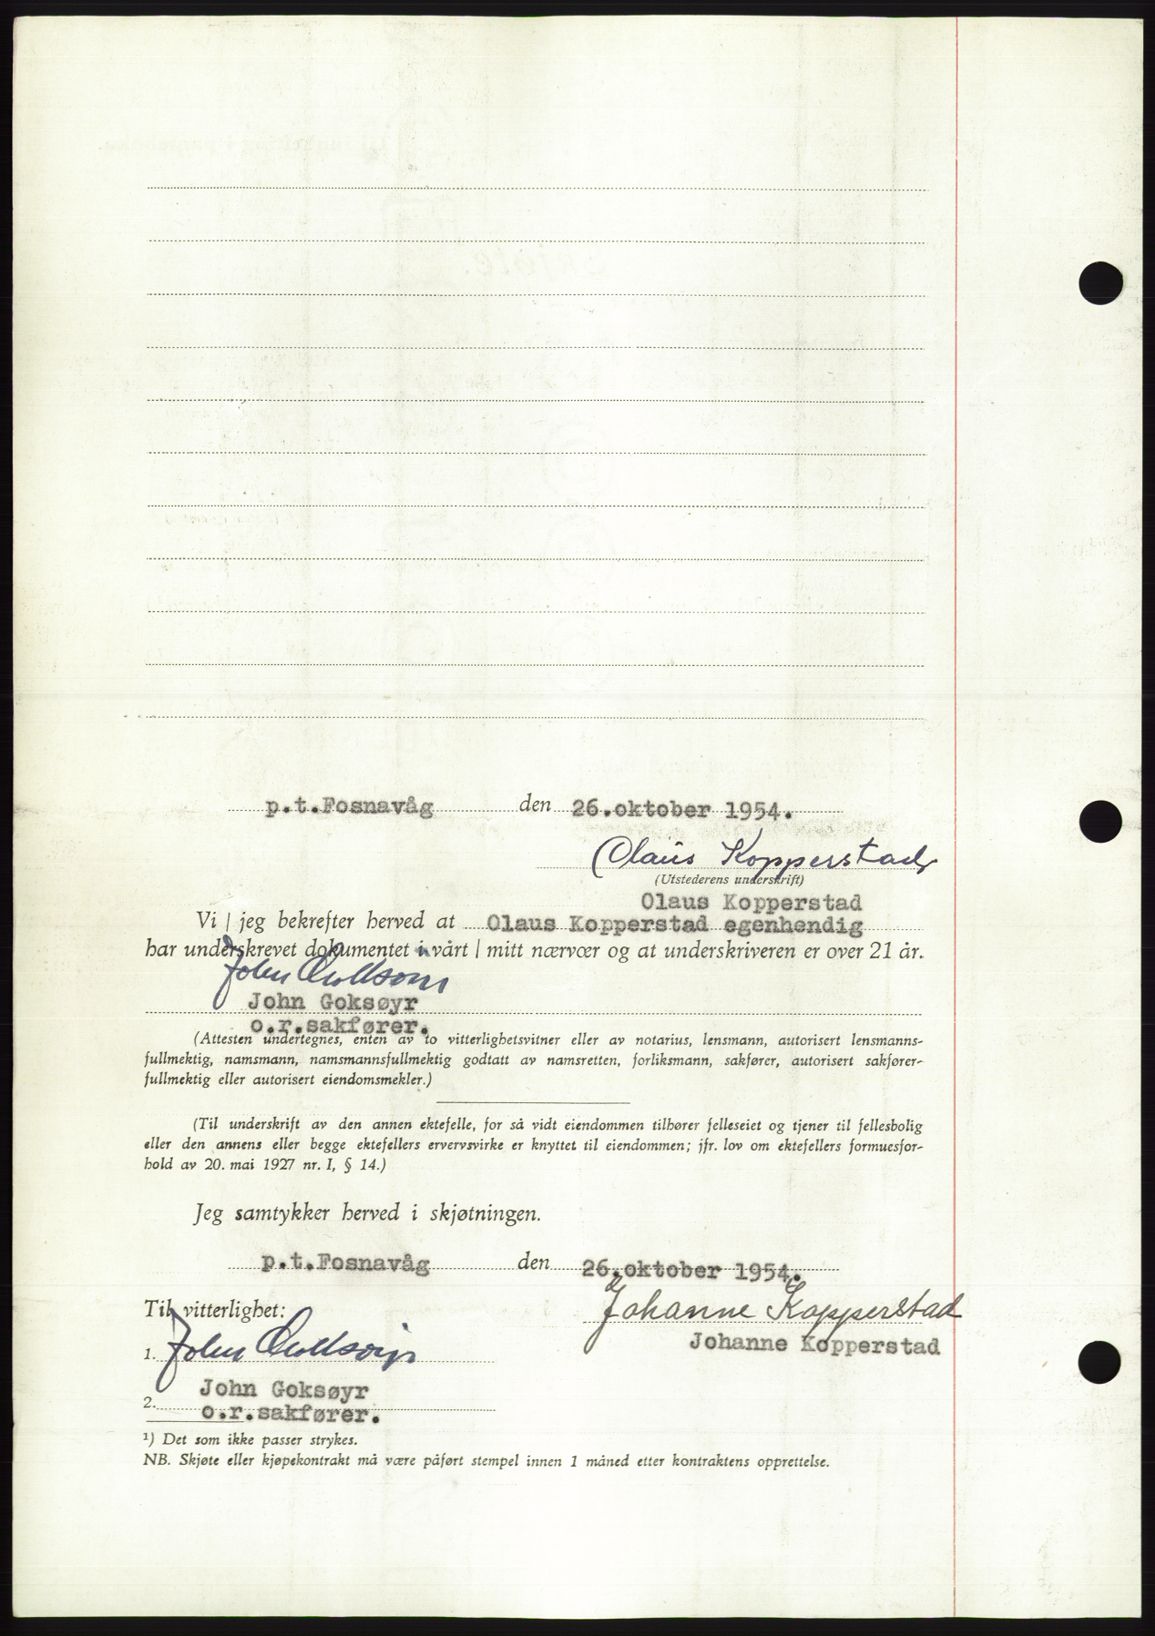 p.t.Fosnavåg den 26.oktober 1954.
Olaus Kopperstad
(Utstederens underskrift)
Olaus Kopperstad
Vi / jeg bekrefter herved at Olaus Kopperstad egenhendig
har underskrevet dokumentet i vårt / mitt nærvær og at underskriveren er over 21 år.
John Goksøyr
John Goksøyr
o.r.sakfører.
(Attesten undertegnes, enten av to vitterlighetsvitner eller av notarius, lensmann, autorisert lensmanns-
fullmektig, namsmann, namsmannsfullmektig godtatt av namsretten, forliksmann, sakfører, autorisert sakfører-
fullmektig eller autorisert eiendomsmekler.)
(Til underskrift av den annen ektefelle, for så vidt eiendommen tilhører felleseiet og tjener til fellesbolig
eller den annens eller begge ektefellers ervervsvirke er knyttet til eiendommen; jfr. lov om ektefellers formuesfor-
hold av 20. mai 1927 nr. I, § 14.)
Jeg samtykker herved i skjøtningen.
p.t.Fosnavåg den 26.oktober 1954.
Til vitterlighet:
Johanne Kopperstad
Johanne Kopperstad
1. John Goksøyr
John Goksøyr
2.
o.r.sakfører.
¹) Det som ikke passer strykes.
NB. Skjøte eller kjøpekontrakt må være påført stempel innen 1 måned etter kontraktens opprettelse.